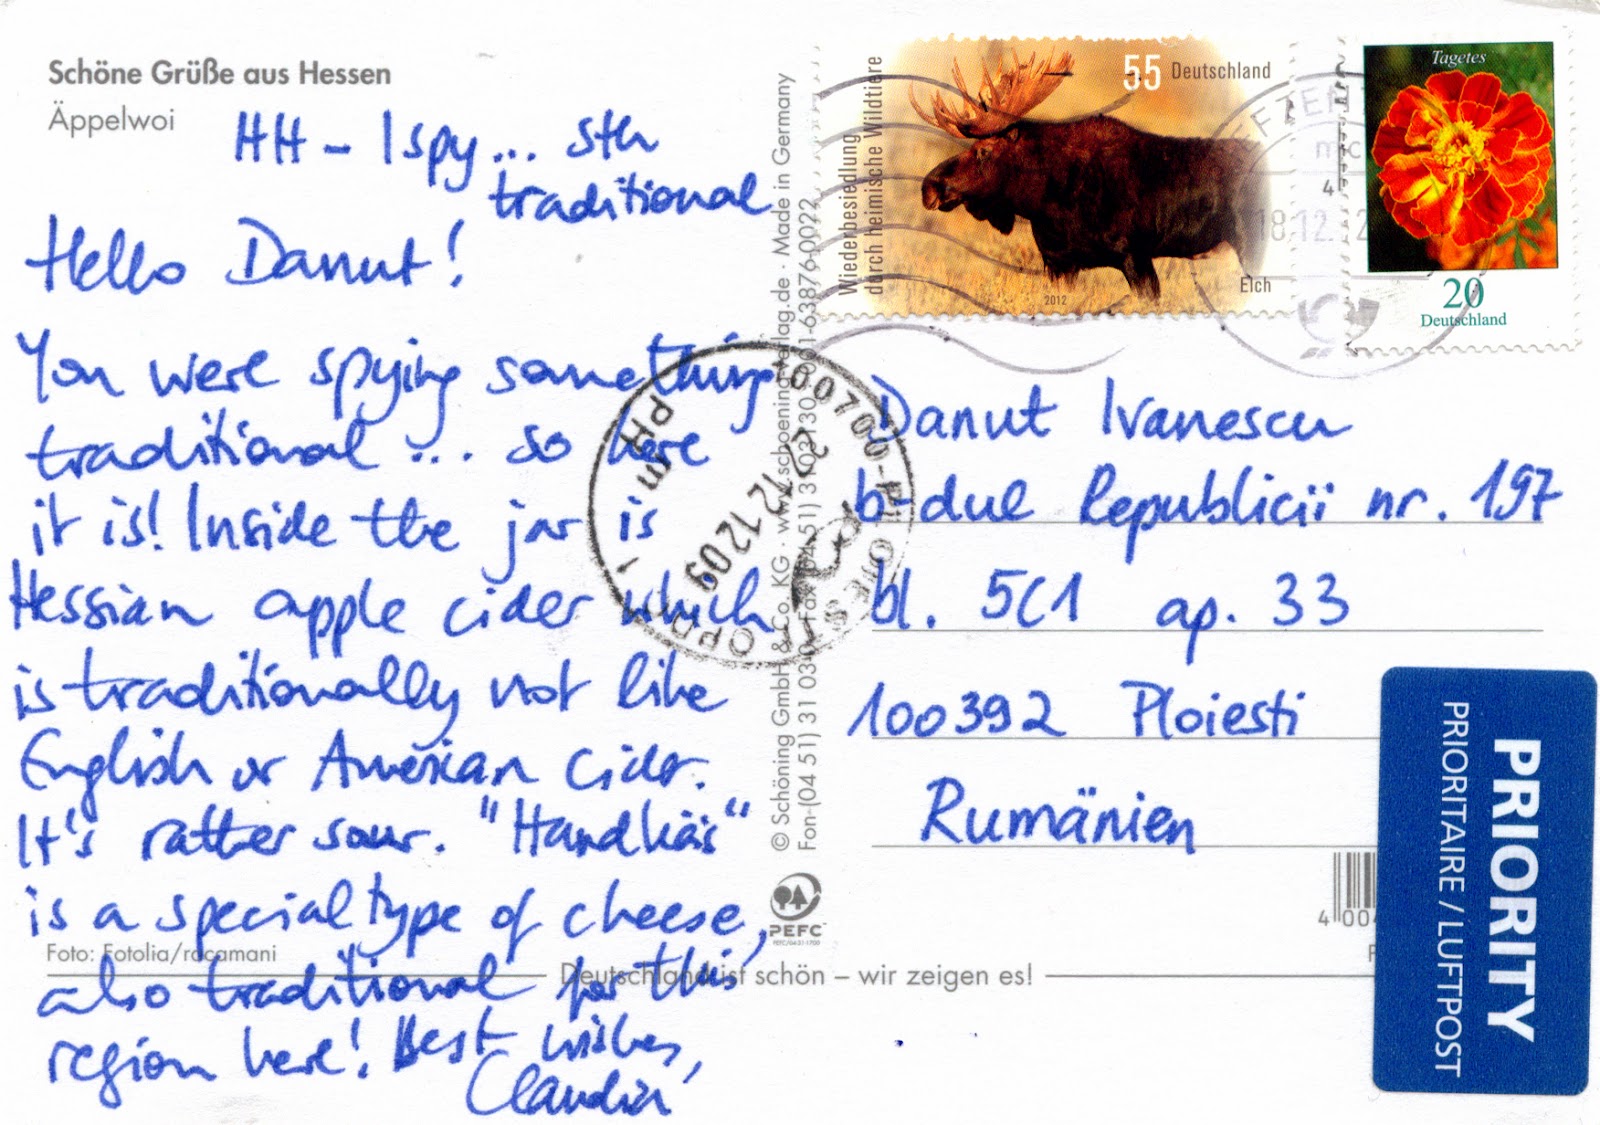 Schöne Grüße aus Hessen
Äppelwoi
HH - I spy... sth
traditional
Hello Danut!
You were spying something
traditional ... so here
it is! Inside the jar is
Hessian apple cider which
is traditionally not like
English or American cider.
It's rather sour. "Handkäs"
is a special type of cheese,
also traditional for this
region here! Best wishes,
Claudia
Foto: Fotolia/racamani
Deutschland ist schön – wir zeigen es!
© Schöning GmbH & Co. KG · www.schoening-verlag.de · Made in Germany
Fon (04 51) 31 03 0
PEFC
Wiederbesiedlung
durch heimische Wildtiere
55 Deutschland
Elch
2012
Tagetes
20
Deutschland
18.12.
Danut Ivanescu
b-dul Republicii nr. 197
bl. 5C1 ap. 33
100392 Ploiesti
Rumänien
PRIORITY
PRIORITAIRE / LUFTPOST
4 00